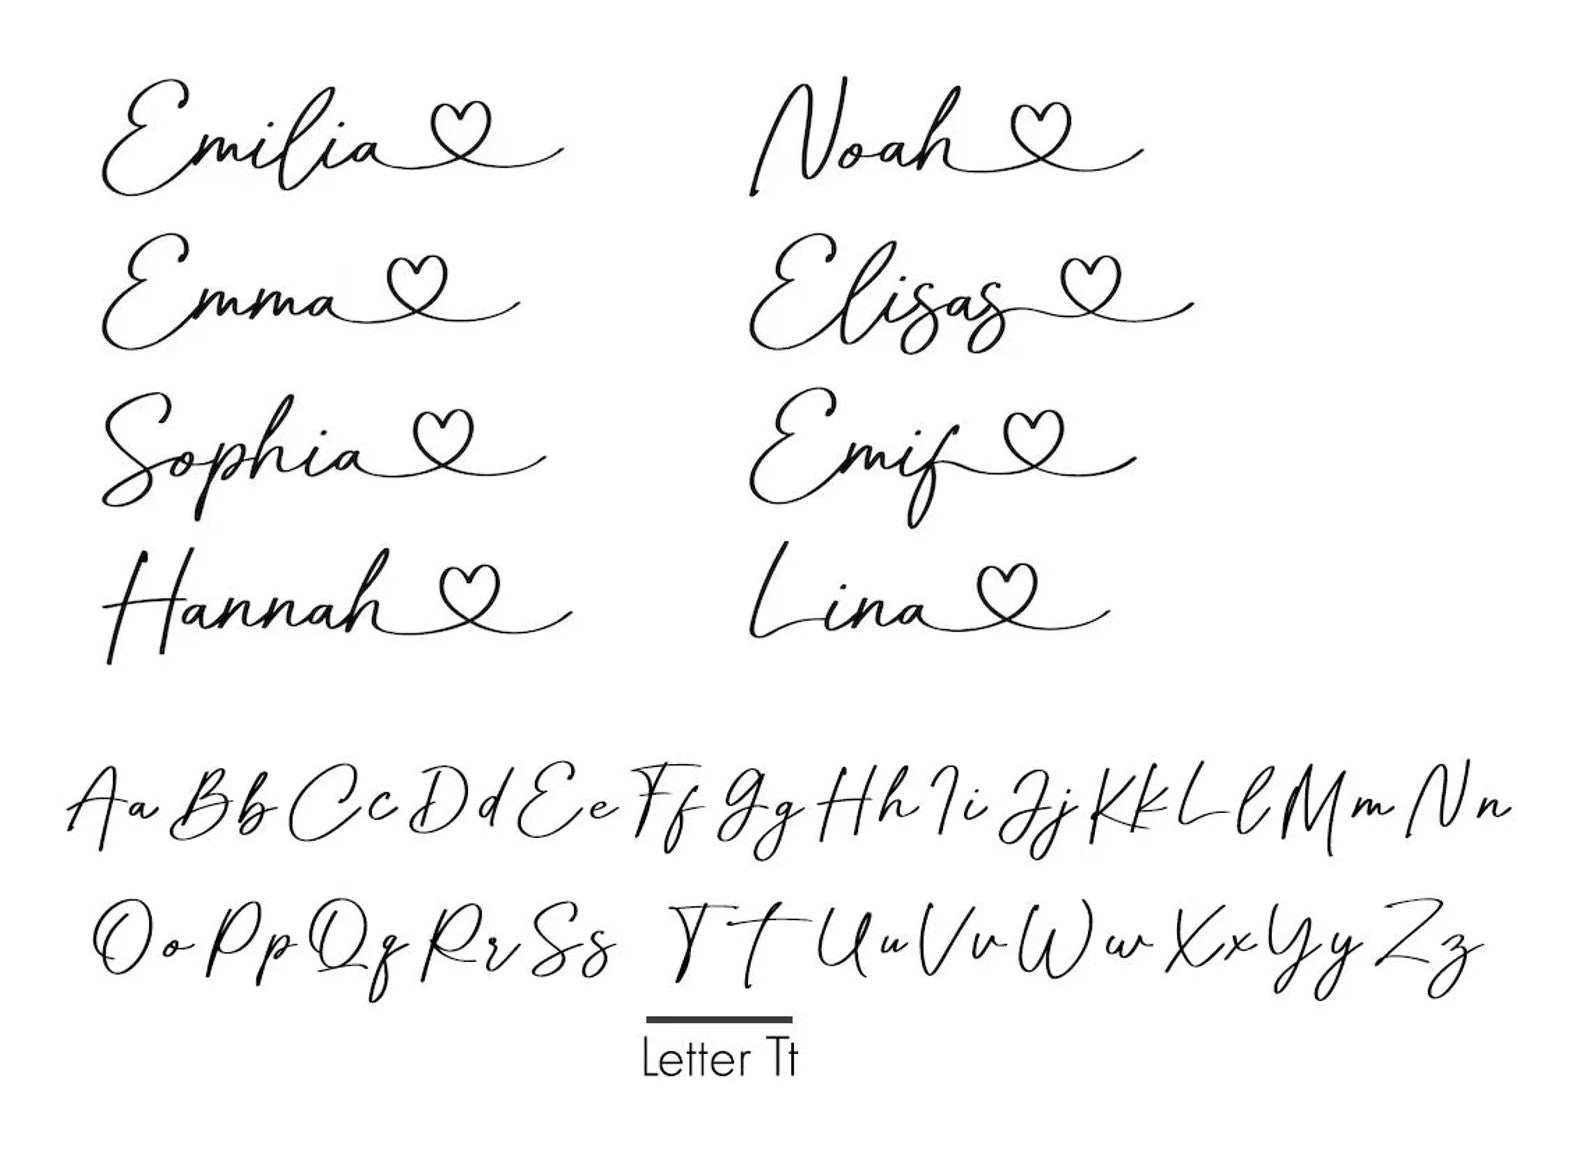 Emilia
Emma
Sophia
Hannah
Noah
Elisas
Emif
Lina
Aa Bb Cc Dd Ee Ff Gg Hh Ii Jj Kk Ll Mm Nn
Oo Pp Qq Rr Ss Tt Uu Vv Ww Xx Yy Zz
Letter Tt